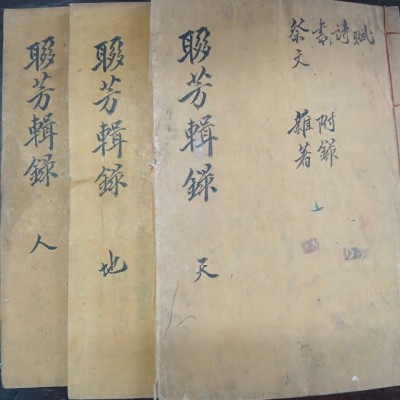 賦詩書祭文
附錄
雜著
聯芳輯錄 天
聯芳輯錄 地
聯芳輯錄 人